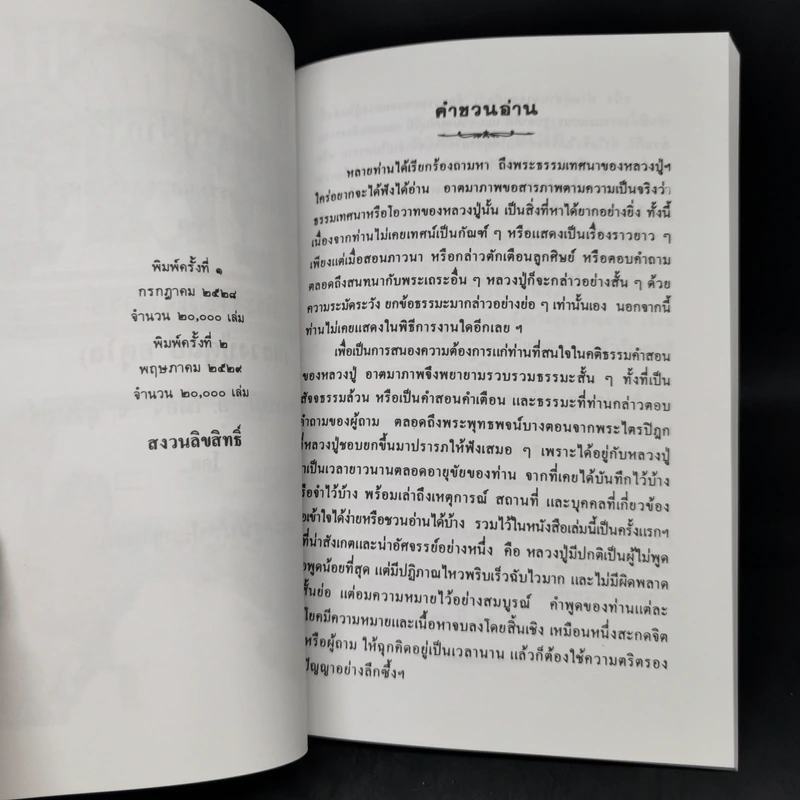 พิมพ์ครั้งที่ ๑
กรกฎาคม ๒๕๒๘
จำนวน ๒๐,๐๐๐ เล่ม
พิมพ์ครั้งที่ ๒
พฤษภาคม ๒๕๒๙
จำนวน ๒๐,๐๐๐ เล่ม
สงวนลิขสิทธิ์
คำชวนอ่าน
หลายท่านได้เรียกร้องถามหา ถึงพระธรรมเทศนาของหลวงปู่ฯ
ใคร่อยากจะได้ฟังได้อ่าน อาตมาภาพขอสารภาพตามความเป็นจริงว่า
ธรรมเทศนาหรือโอวาทของหลวงปู่นั้น เป็นสิ่งที่หาได้ยากอย่างยิ่ง ทั้งนี้
เนื่องจากท่านไม่เคยเทศน์เป็นกัณฑ์ ๆ หรือแสดงเป็นเรื่องราวยาว ๆ
เพียงแต่เมื่อสอนภาวนา หรือกล่าวตักเตือนลูกศิษย์ หรือตอบคำถาม
ตลอดถึงสนทนากับพระเถระอื่น ๆ หลวงปู่ก็จะกล่าวอย่างสั้น ๆ ด้วย
ความระมัดระวัง ยกข้อธรรมะมากล่าวอย่างย่อ ๆ เท่านั้นเอง นอกจากนี้
ท่านไม่เคยแสดงในพิธีการงานใดอีกเลย ฯ
เพื่อเป็นการสนองความต้องการแก่ท่านที่สนใจในคติธรรมคำสอน
ของหลวงปู่ อาตมาภาพจึงพยายามรวบรวมธรรมะสั้น ๆ ทั้งที่เป็น
สัจจธรรมล้วน หรือเป็นคำสอนคำเตือน และธรรมะที่ท่านกล่าวตอบ
คำถามของผู้ถาม ตลอดถึงพระพุทธพจน์บางตอนจากพระไตรปิฎก
ที่หลวงปู่ชอบยกขึ้นมาปรารภให้ฟังเสมอ ๆ เพราะได้อยู่กับหลวงปู่
าเป็นเวลายาวนานตลอดอายุขัยของท่าน จากที่เคยได้บันทึกไว้บ้าง
รือจำไว้บ้าง พร้อมเล่าถึงเหตุการณ์ สถานที่ และบุคคลที่เกี่ยวข้อง
อเข้าใจได้ง่ายหรือชวนอ่านได้บ้าง รวมไว้ในหนังสือเล่มนี้เป็นครั้งแรกฯ
ที่น่าสังเกตและน่าอัศจรรย์อย่างหนึ่ง คือ หลวงปู่มีปกติเป็นผู้ไม่พูด
อพูดน้อยที่สุด แต่มีปฏิภาณไหวพริบเร็วฉับไวมาก และไม่มีผิดพลาด
สั้นย่อ แต่อมความหมายไว้อย่างสมบูรณ์ คำพูดของท่านแต่ละ
โยคมีความหมายและเนื้อหาจบลงโดยสิ้นเชิง เหมือนหนึ่งสะกดจิต
หรือผู้ถาม ให้ฉุกคิดอยู่เป็นเวลานาน แล้วก็ต้องใช้ความตริตรอง
ปัญญาอย่างลึกซึ้งฯ